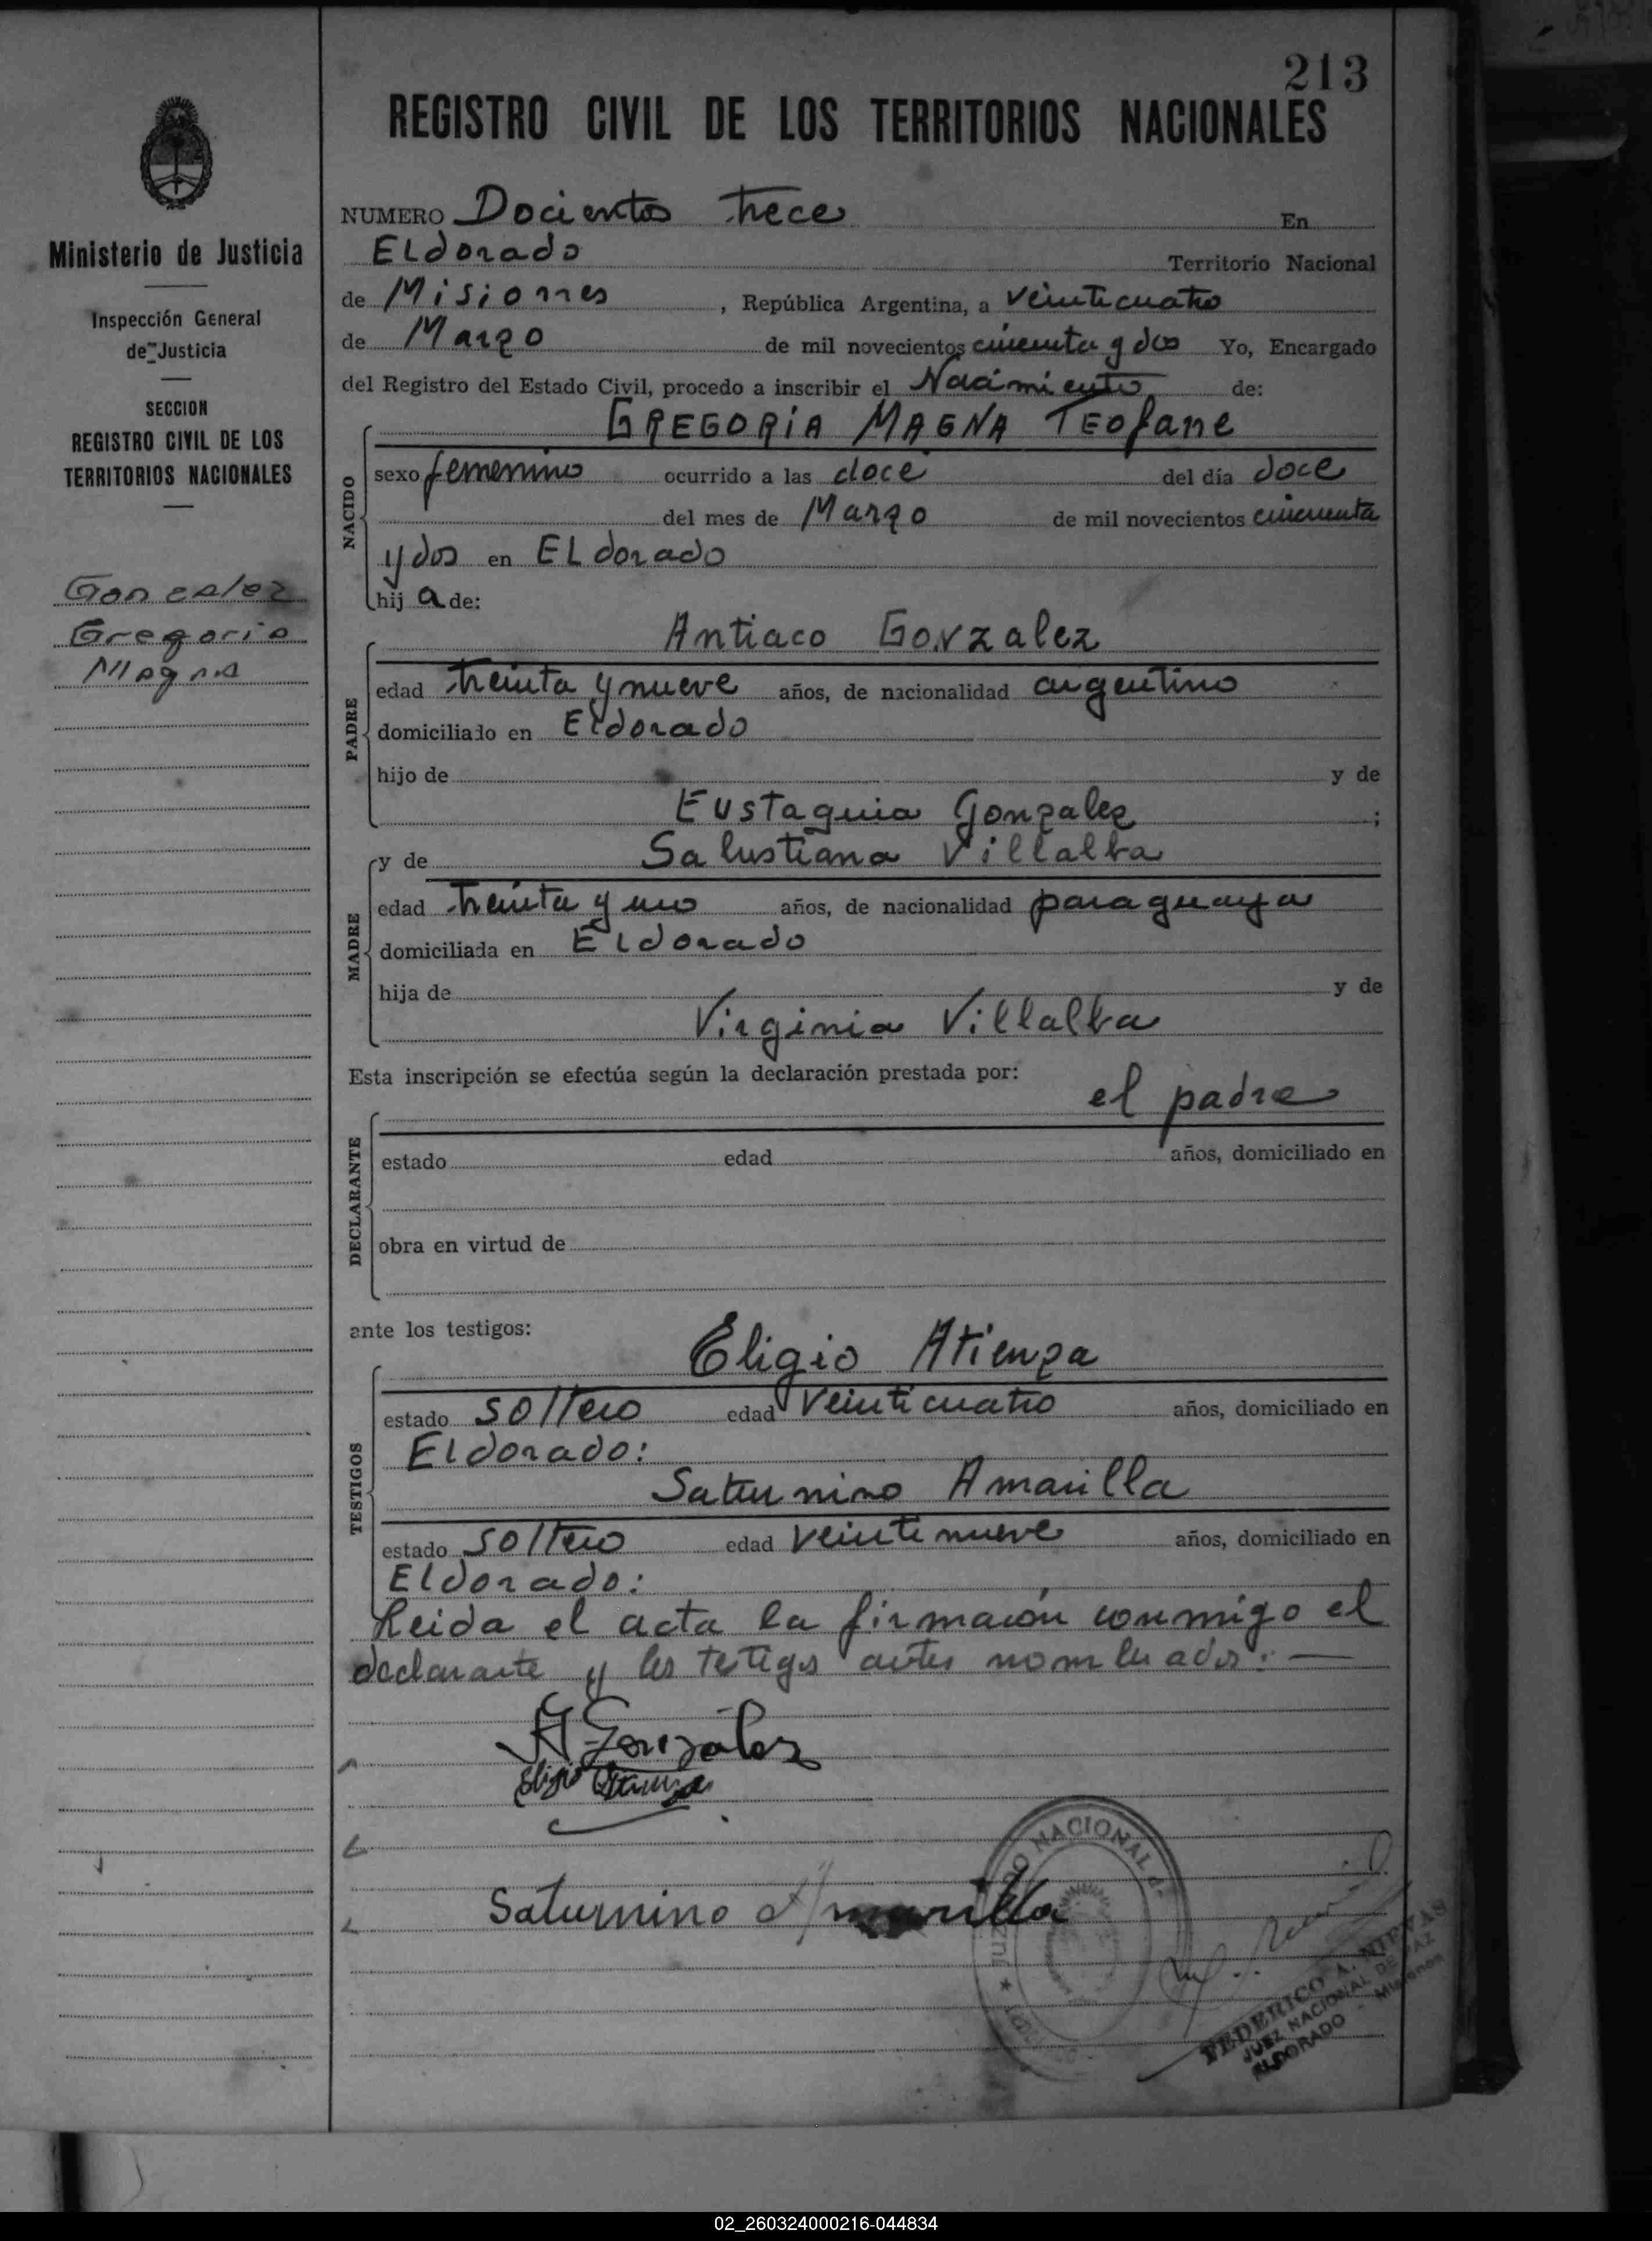 213
REGISTRO CIVIL DE LOS TERRITORIOS NACIONALES
Ministerio de Justicia
Inspección General
de Justicia
SECCION
REGISTRO CIVIL DE LOS
TERRITORIOS NACIONALES
Gonzalez
Gregoria
Magna
NUMERO Docientos trece En
ELdorado Territorio Nacional
de Misiones, República Argentina, a veinticuatro
de Marzo de mil novecientos cincuenta y dos Yo, Encargado
del Registro del Estado Civil, procedo a inscribir el Nacimiento de:
GREGORIA MAGNA TEofane
NACIDO
sexo femenino ocurrido a las doce del día doce
del mes de Marzo de mil novecientos cincuenta
y dos en ELdorado
hij a de:
Antiaco Gonzalez
PADRE
edad treinta y nueve años, de nacionalidad argentino
domiciliado en Eldorado
hijo de y de
Eustaquia Gonzalez ;
MADRE
y de Salustiana Villalba
edad treinta y uno años, de nacionalidad paraguaya
domiciliada en ELdorado
hija de y de
Virginia Villalba
Esta inscripción se efectúa según la declaración prestada por:
el padre
DECLARANTE
estado edad años, domiciliado en
obra en virtud de
ante los testigos:
Eligio Atienza
TESTIGOS
estado soltero edad veinticuatro años, domiciliado en
Eldorado:
Saturnino Amarilla
estado soltero edad veintinueve años, domiciliado en
Eldorado:
Leida el acta la firmaron conmigo el
declarante y los testigos antes nombrados: —
A Gonzáles
Eligio Atienza
Saturnino Amarilla
JUZGADO NACIONAL
FEDERICO A. NIEVAS
JUEZ NACIONAL DE PAZ
ELDORADO - Misiones
02_260324000216-044834